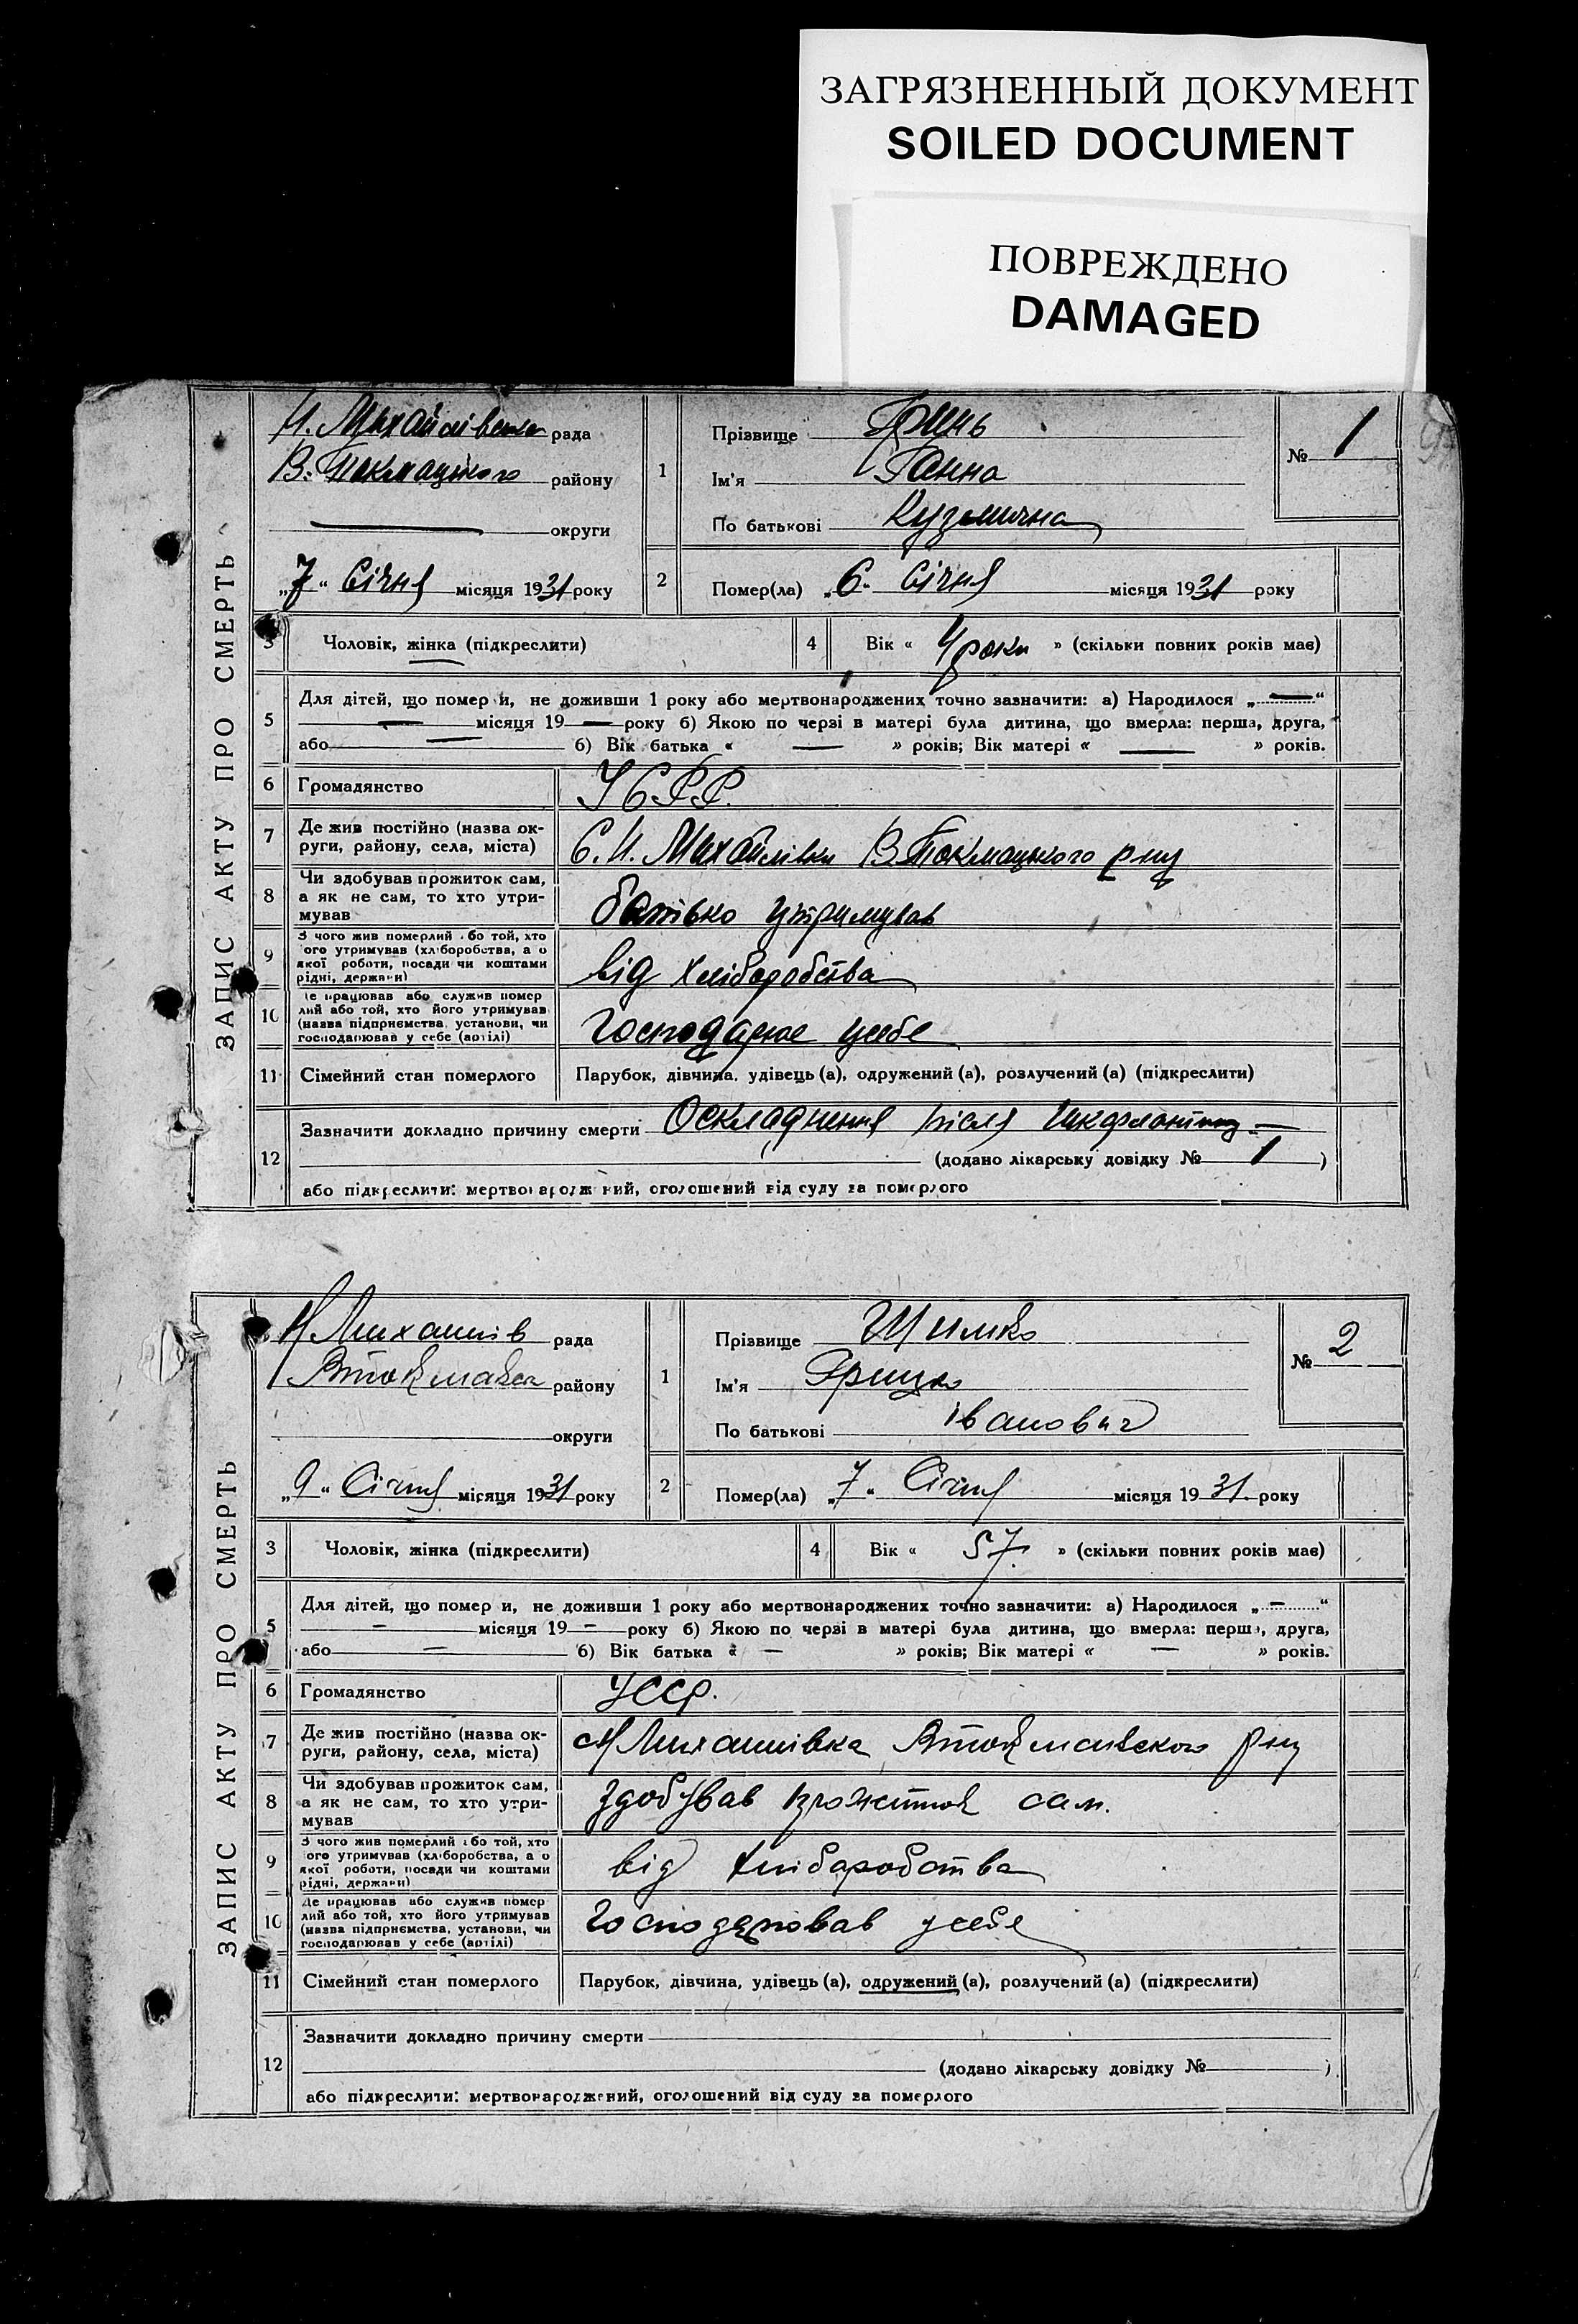 ЗАГРЯЗНЕННЫЙ ДОКУМЕНТ
SOILED DOCUMENT
ПОВРЕЖДЕНО
DAMAGED
ЗАПИС АКТУ ПРО СМЕРТЬ
Н. Михайлівська рада
В. Токмацького району
округи
„7“ Січня місяця 1931 року
1
Прізвище Гринь
Ім'я Ганна
По батькові Кузьмична
№ 1
2
Помер(ла) „6“ Січня місяця 1931 року
3 Чоловік, жінка (підкреслити)
4 Вік « 4 роки » (скільки повних років має)
5
Для дітей, що помер и, не доживши 1 року або мертвонароджених точно зазначити: а) Народилося „—“
— місяця 19 — року б) Якою по черзі в матері була дитина, що вмерла: перша, друга,
або — б) Вік батька « — » років; Вік матері « — » років.
6 Громадянство УСРР.
7 Де жив постійно (назва ок-
руги, району, села, міста) С. Н. Михайлівки В Токмацького р-ну
8 Чи здобував прожиток сам,
а як не сам, то хто утри-
мував батько утримував
9 З чого жив померлий або той, хто
ого утримував (хліборобства, а о
якої роботи, посади чи коштами
рідні, держави) від хліборобства
10 Де працював або служив помер
лий або той, хто його утримував
(назва підприємства, установи, чи
господарював у себе (артілі) Господарює усебе
11 Сімейний стан померлого Парубок, дівчина, удівець (а), одружений (а), розлучений (а) (підкреслити)
12
Зазначити докладно причину смерти Оскладнення після Шкарлятини —
(додано лікарську довідку № 1 )
або підкреслити: мертвонароджений, оголошений від суду за померлого
ЗАПИС АКТУ ПРО СМЕРТЬ
Н Михайлів рада
Втокмаськ району
округи
„9“ Січня місяця 1931 року
1
Прізвище
Ім'я Грицко
По батькові Іванович
№ 2
2
Помер(ла) „7“ Січня місяця 1931. року
3 Чоловік, жінка (підкреслити)
4 Вік « 57. » (скільки повних років має)
5
Для дітей, що помер и, не доживши 1 року або мертвонароджених точно зазначити: а) Народилося „—“
— місяця 19 — року б) Якою по черзі в матері була дитина, що вмерла: перша, друга,
або — б) Вік батька « — » років; Вік матері « — » років.
6 Громадянство УССР.
7 Де жив постійно (назва ок-
руги, району, села, міста) Михайлівка Втокмавського р-ну
8 Чи здобував прожиток сам,
а як не сам, то хто утри-
мував Здобував прожиток сам.
9 З чого жив померлий або той, хто
ого утримував (хліборобства, а о
якої роботи, посади чи коштами
рідні, держави) від хліборобства
10 Де працював або служив помер
лий або той, хто його утримував
(назва підприємства, установи, чи
господарював у себе (артілі) Господарював усебе
11 Сімейний стан померлого Парубок, дівчина, удівець (а), одружений (а), розлучений (а) (підкреслити)
12
Зазначити докладно причину смерти
(додано лікарську довідку № )
або підкреслити: мертвонароджений, оголошений від суду за померлого